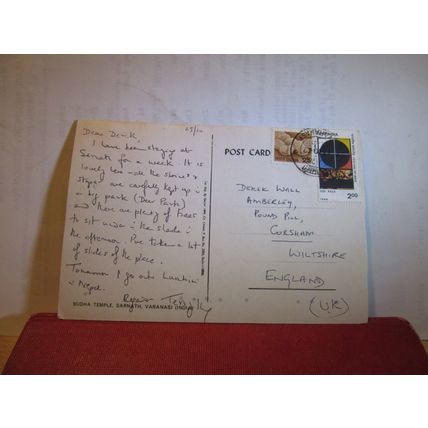 25/10
Dear Derek,
I have been staying at
Sarnath for a week. It is
lovely here - all the stones &
stupas are carefully kept up in
big park (Deer Park)
and there are plenty of trees
to sit under in the shade in
the afternoon. I've taken a lot
of slides of the place.
Tomorrow I go onto Lumbini
in Nepal.
BUDHA TEMPLE, SARNATH, VARANASI (INDIA)
POST CARD
2.00
DEREK WALL
AMBERLEY,
POUND PILL,
CORSHAM
WILTSHIRE
ENGLAND
(U.K)